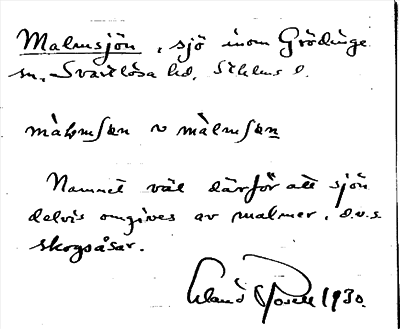 Malmsjön, sjö inom Grödinge
sn, Svartlösa hd, Sthlms l.
màlmsen v màlmsen
Namnet väl därför att sjön
delvis omgives av malmer, d.v.s.
skogsåsar.
Erland Rosell 1930.